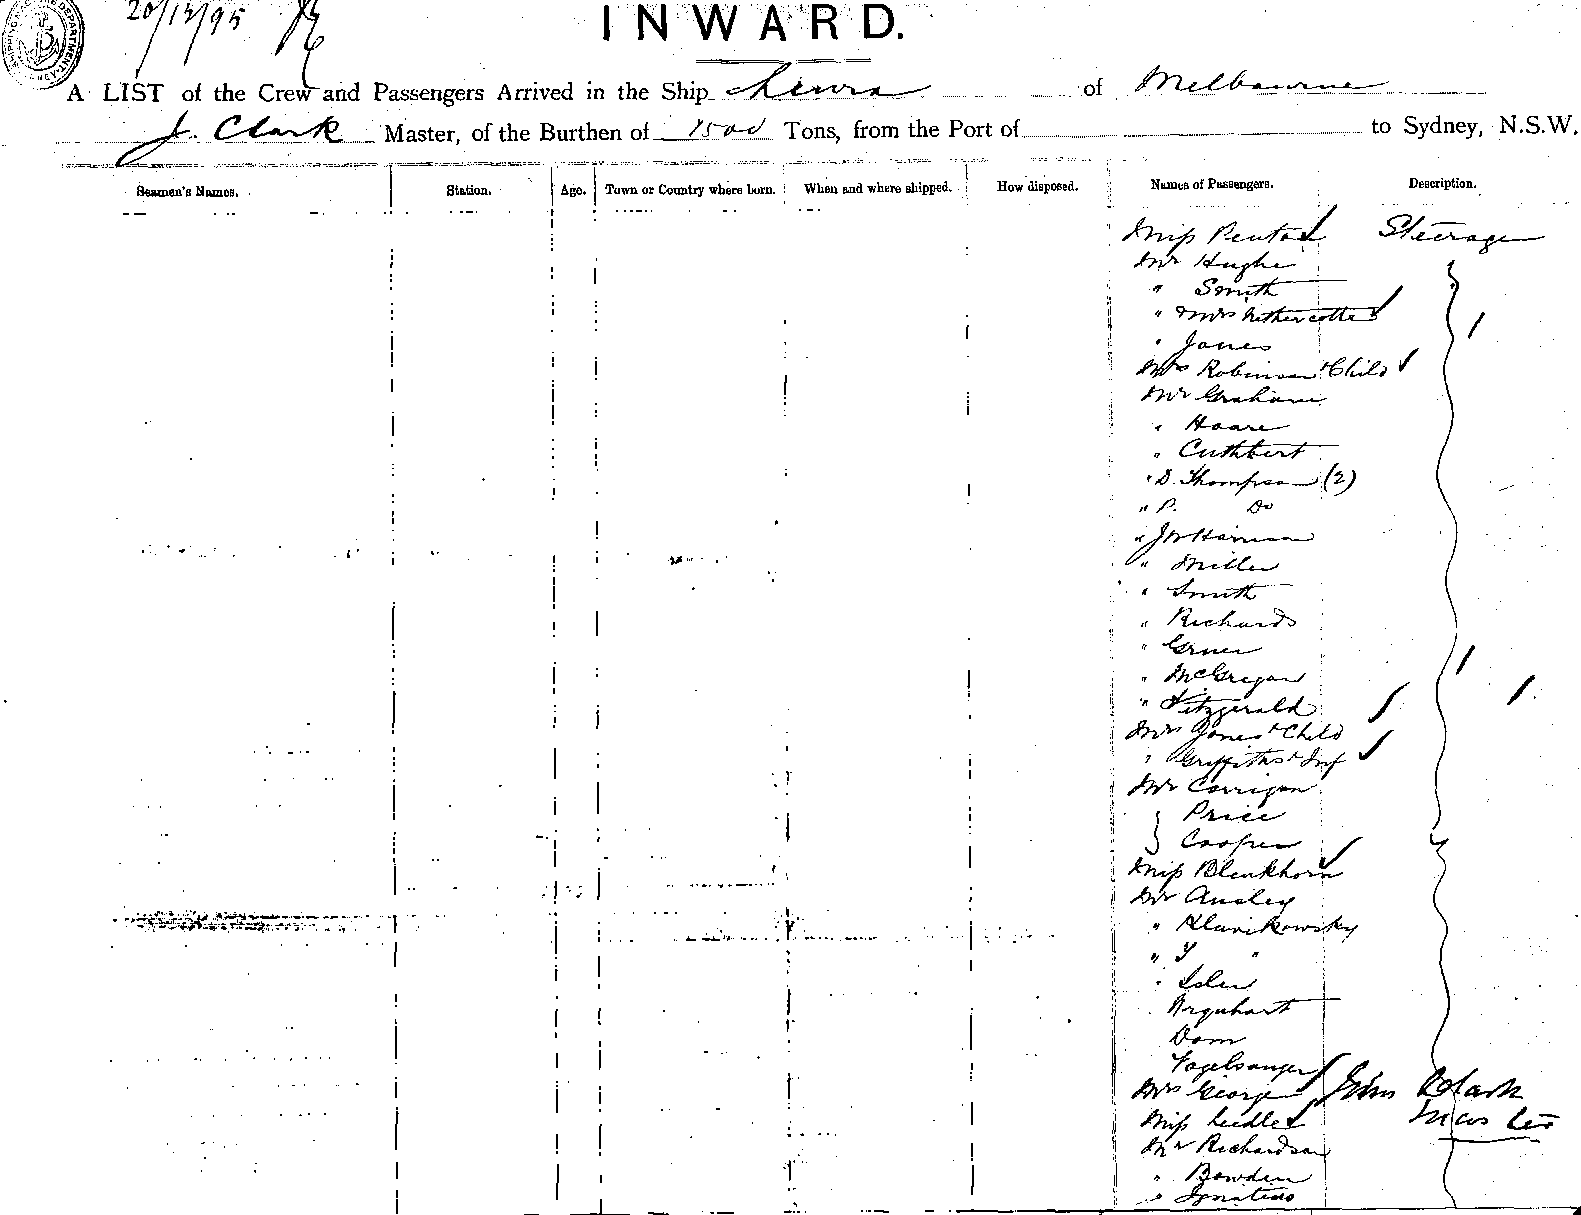 20/12/95
INWARD.
A LIST of the Crew and Passengers Arrived in the Ship of Melbourne
J. Clark Master, of the Burthen of 1500 Tons, from the Port of to Sydney, N.S.W.
Seamen's Names. Station. Age. Town or Country where born. When and where shipped. How disposed. Names of Passengers. Description.
Miss Penton Steerage
Mr Hughe
" Smith
" Mrs Nethercotte
" Jones
Mrs Robinson + Child
Mr Graham
" Hoare
" Cuthbert
" D. Thompson (2)
" P. Do
" J W Harrison
" Miller
" Smith
" Richards
"
" McGregor
" Fitzgerald
Mrs Jones + Child
" Griffiths + Inf
Mr Corrigan
Price
Cooper
Miss Blenkhorn
Mr Ansley
"
" "
"
Urquhart
Dom
Vogelsanger
Mrs George John Clark
Miss Master
Mr Richardson
" Bowden
" Ignatius